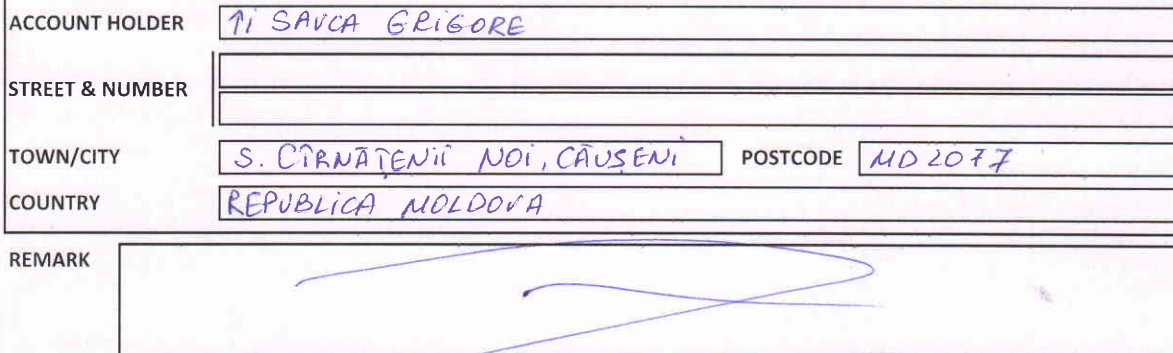 ACCOUNT HOLDER ÎI SAVCA GRIGORE
STREET & NUMBER
TOWN/CITY S. CÎRNĂȚENII NOI, CĂUȘENI POSTCODE MD 2077
COUNTRY REPUBLICA MOLDOVA
REMARK